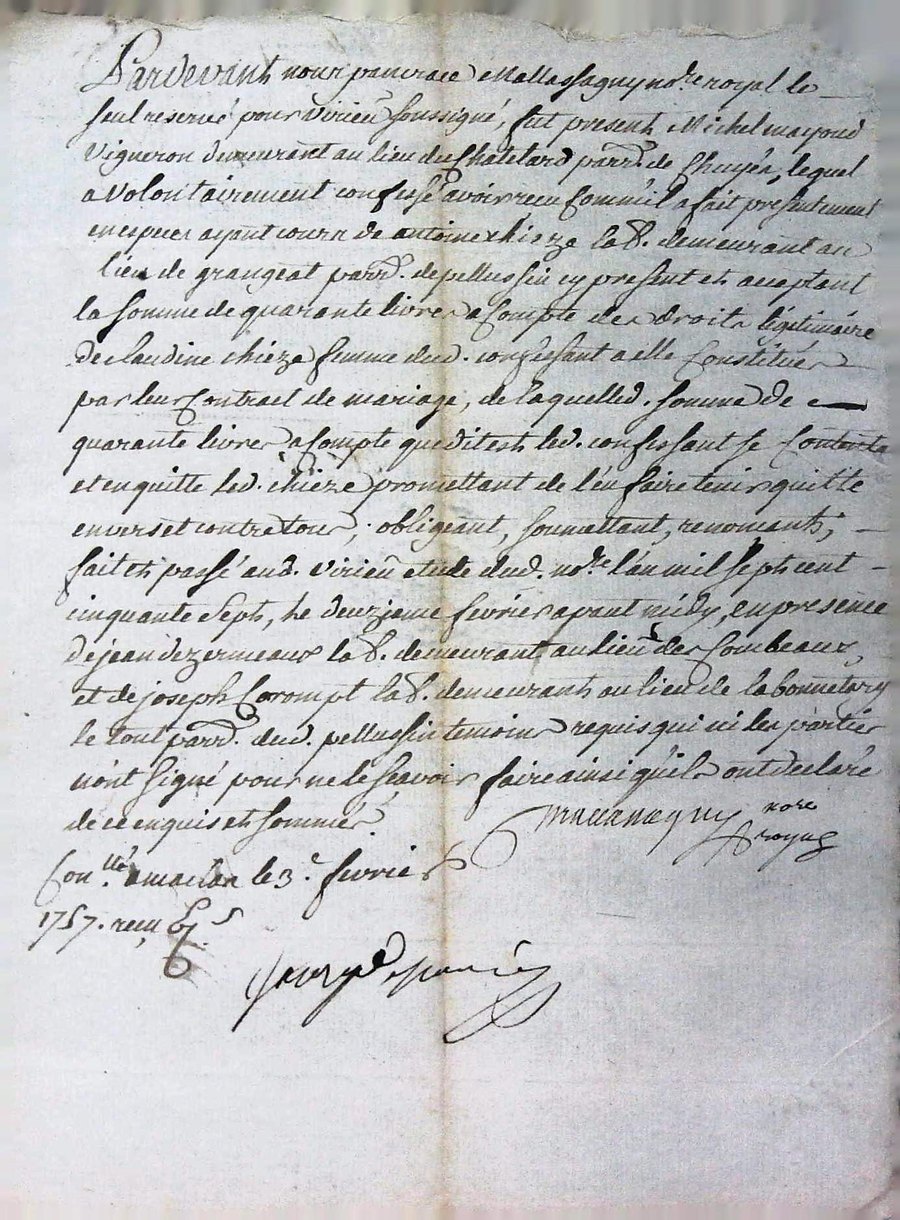 Pardevant nous pancrace Mallassagny no.re royal le
seul reservé pour virieu soussigné, fut present Michel mayoud
vigneron demeurant au lieu du Chatelard parr.e de Chuyér, lequel
a volontairement confessé avoir recu comm'il a fait presentement
en especes ayant cours de antoine chieze lab.r demeurant au
lieu de grangeat parr.e de pellussin cy present et acceptant
la somme de quarante livres a compte des droits légitimaire
de claudine chieze femme dud. confessant a elle Constitués
par leur Contract de mariage, de laquelled. somme de
quarante livres a compte que dit est led. confessant se Contente
et en quitte led. chièze promettant de l'en faire tenir quitte
envers et contre tous; obligeant, soumettant, renonçant;
fait et passé aud. virieu etude dud. no.re l'an mil sept cent
cinquante sept, le deuzieme fevrier avant midy, en presence
de jean dezermeaux lab.r demeurant au lieu des Combeaux,
et de joseph Corompt lab.r demeurant au lieu de la bonnetary
le tout parr.e dud. pellussin temoins requis qui ni les parties
n'ont signé pour ne le sçavoir faire ainsi qu'ils ont declaré
de ce enquis et sommés
Mallassagny no.re
royal
Con.llé a maclas le 3.e fevrier
1757. recu